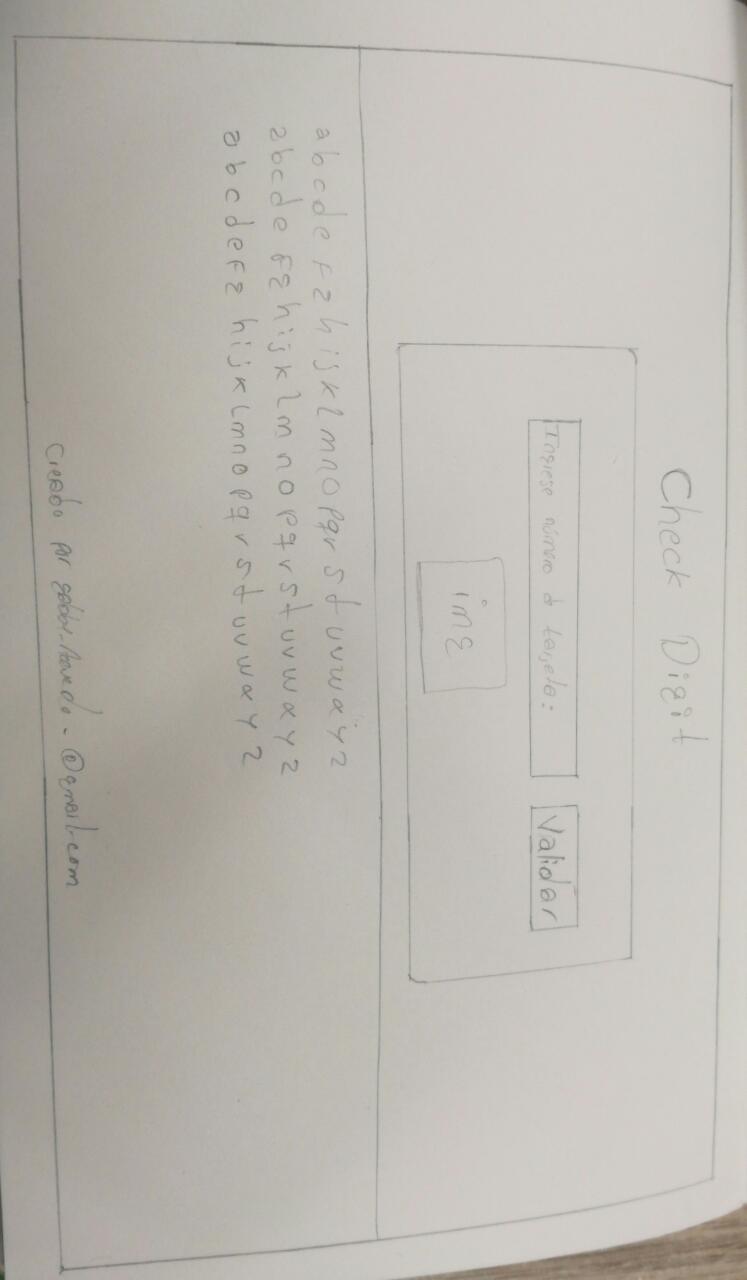 Check Digit
Ingrese número de tarjeta:
Validar
img
abcdefghijklmnopqrstuvwxyz
abcdefghijklmnopqrstuvwxyz
abcdefghijklmnopqrstuvwxyz
Creado por @gmail.com